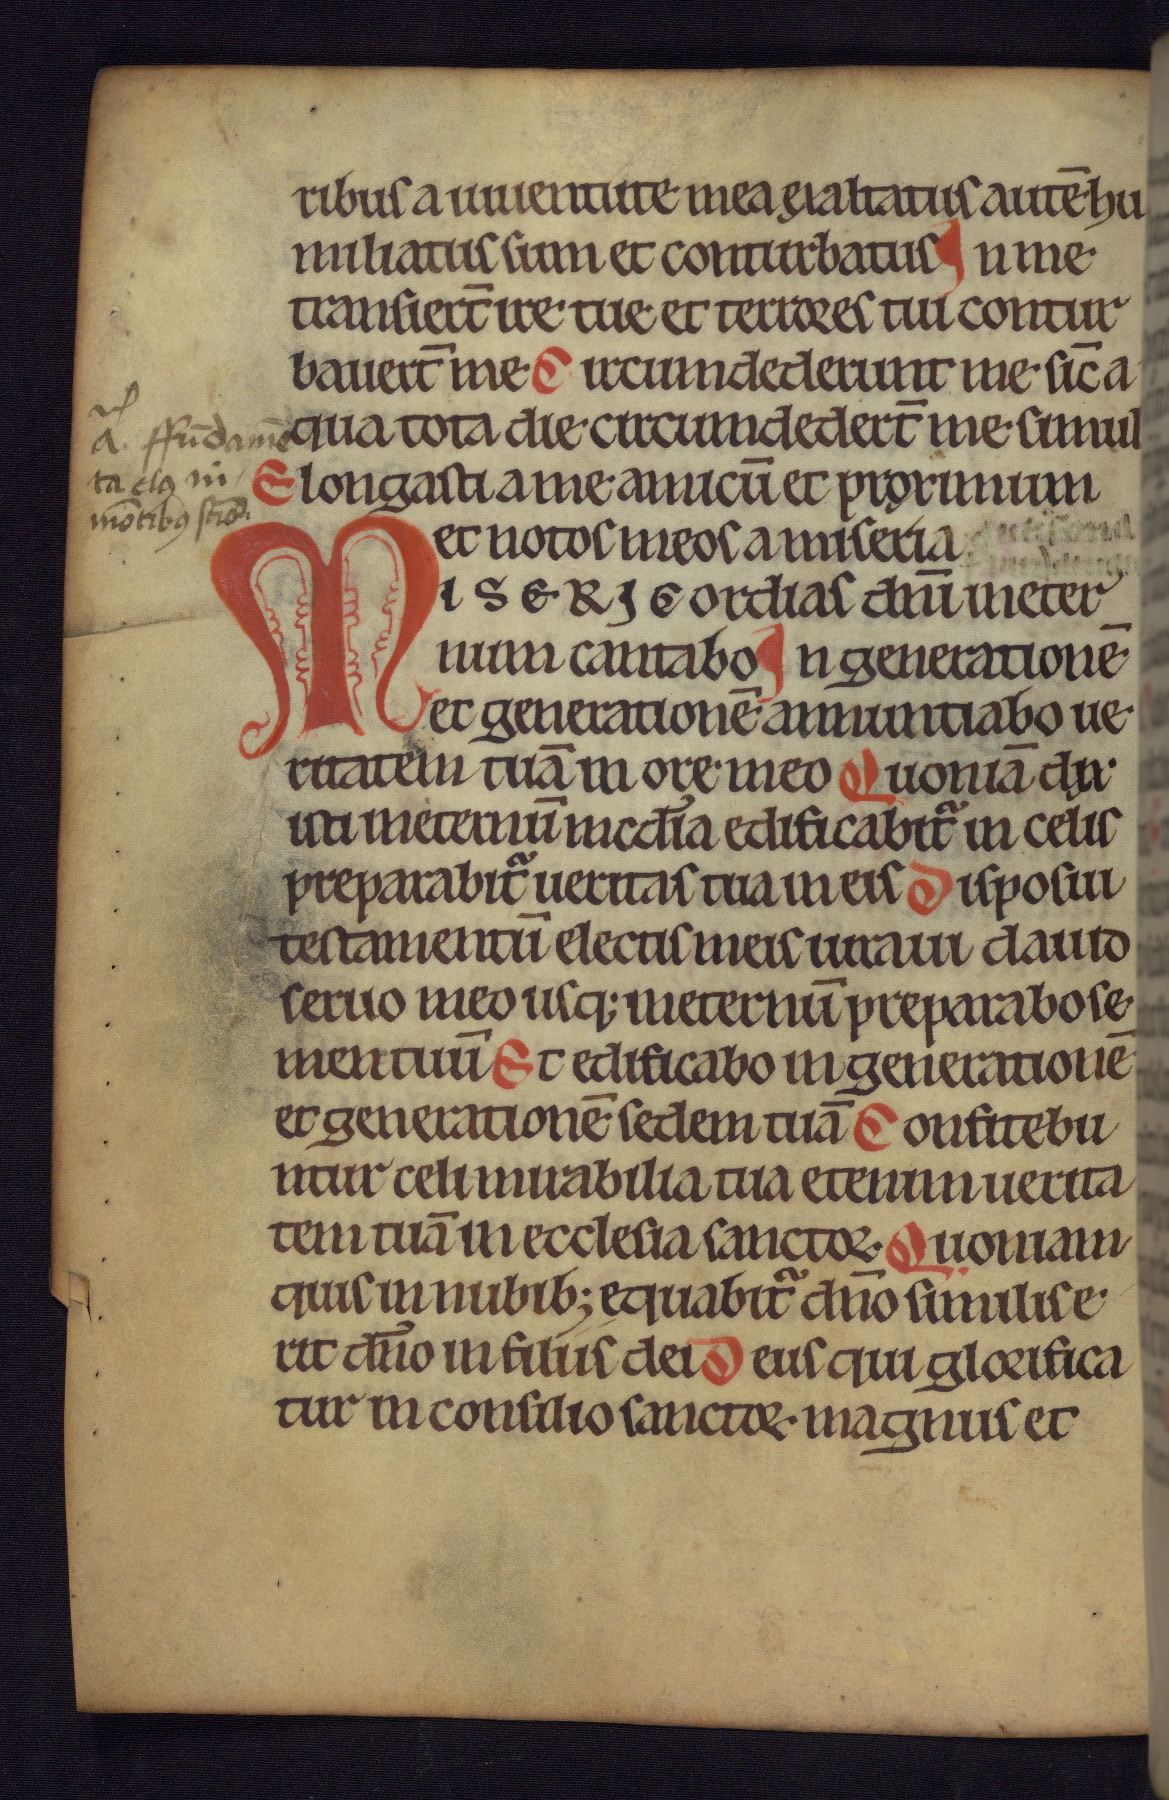 ribus a iuuentute mea exaltatus autē hu
miliatus sum et conturbatus In me
transiert̄ ire tue et terrores tui contur
bauert̄ me Circumdederunt me sic̄ a
qua tota die circumdedert̄ me simul
Elongasti a me amicū et proximum
et notos meos a miseria
MISERICordias dn̄i in eter
num cantabo In generationē
et generationē annuntiabo ue
ritatem tuā in ore meo Quoniā dix
isti in eternū mc̄dia edificabit᷑ in celis
preparabit᷑ ueritas tua in eis Disposui
testamentū electis meis iuraui dauid
seruo meo usq; in eternū preparabo se
men tuū Et edificabo in generationē
et generationē sedem tuā Confitebu
ntur celi mirabilia tua etenim uerita
tem tuā in ecclesia sanctoꝝ. Quoniam
quis in nubib; equabit᷑ dn̄o similis e
rit dn̄o in filiis dei Deus qui glorifica
tur in consilio sanctoꝝ. magnus et
a. ffūdamē
ta eiꝰ in
mōtibꝰ